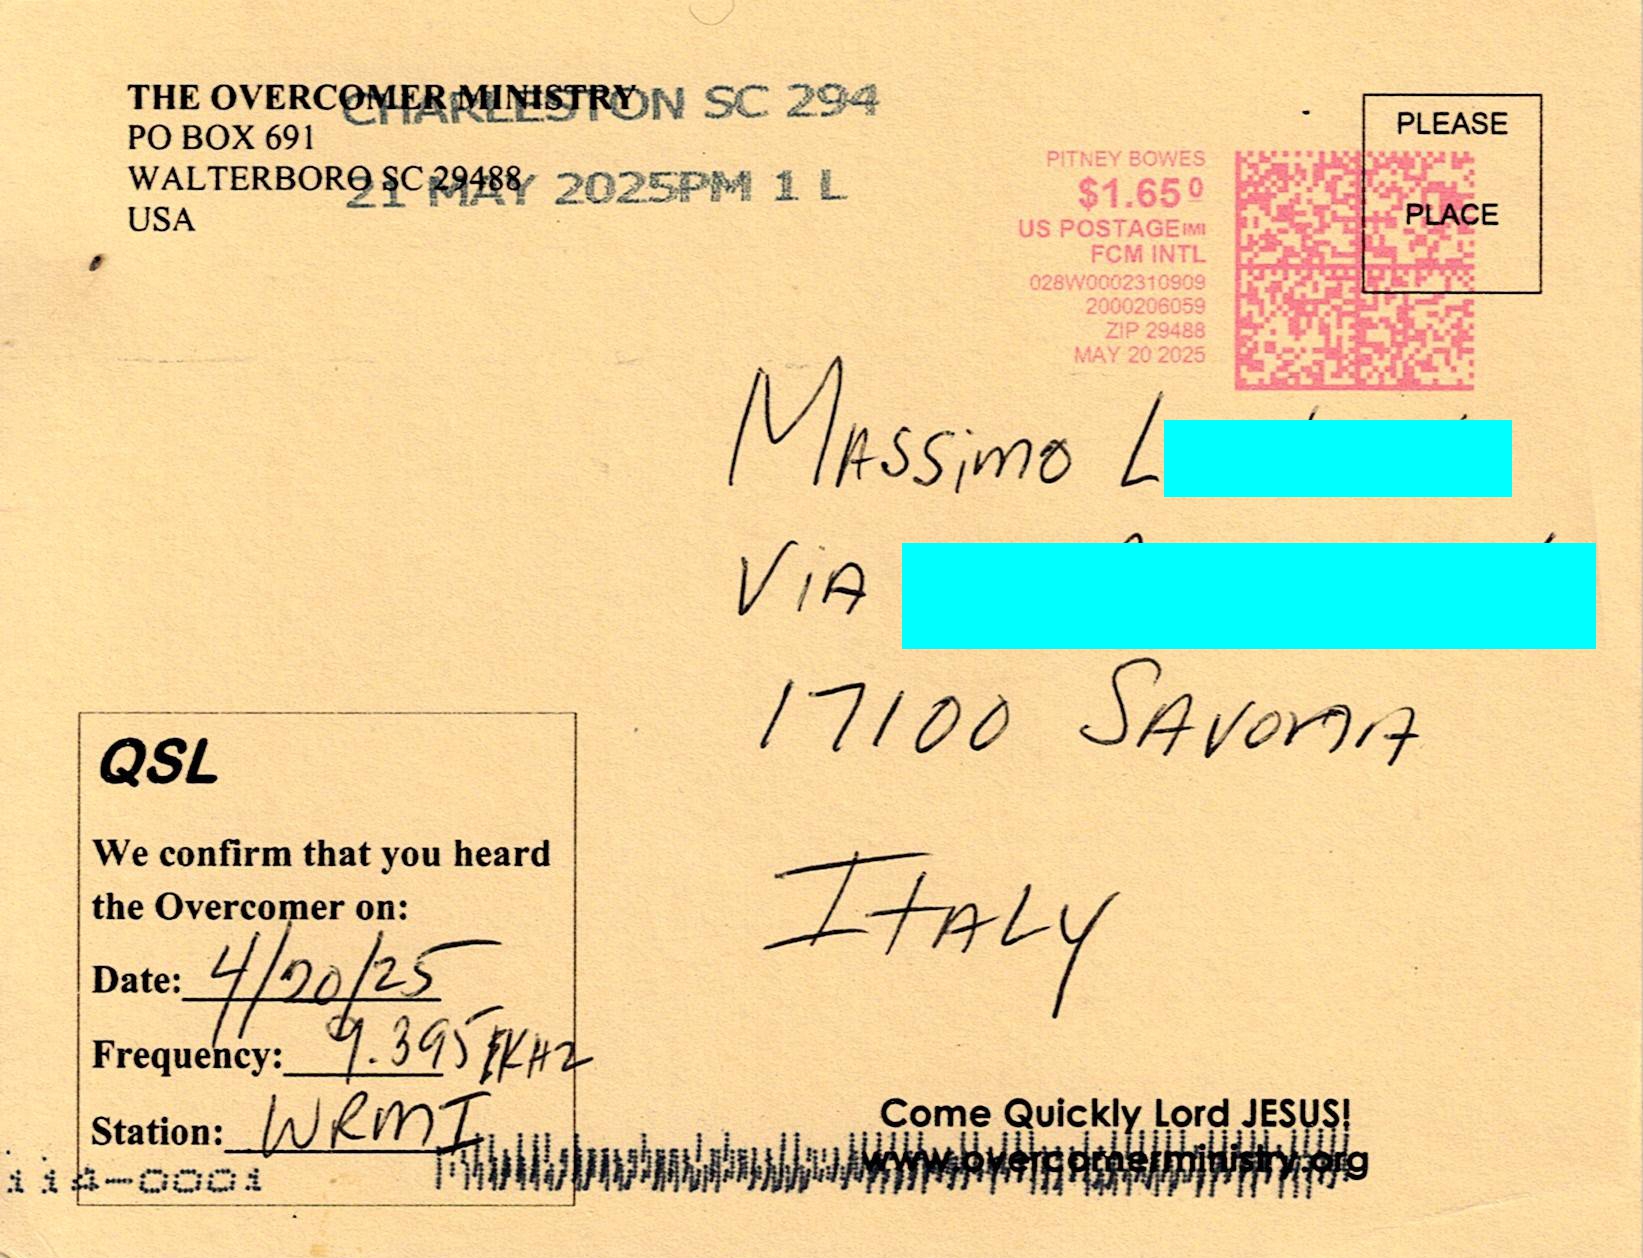 THE OVERCOMER MINISTRY
PO BOX 691
WALTERBORO SC 29488
USA
CHARLESTON SC 294
21 MAY 2025PM 1 L
PITNEY BOWES
$1.65⁰
US POSTAGE IMI
FCM INTL
028W0002310909
2000206059
ZIP 29488
MAY 20 2025
PLEASE
PLACE
MASSiMO L
ViA
17100 SAVONA
ITALY
QSL
We confirm that you heard
the Overcomer on:
Date: 4/20/25
Frequency: 9.395 KHZ
Station: WRMI
Come Quickly Lord JESUS!
www.overcomerministry.org